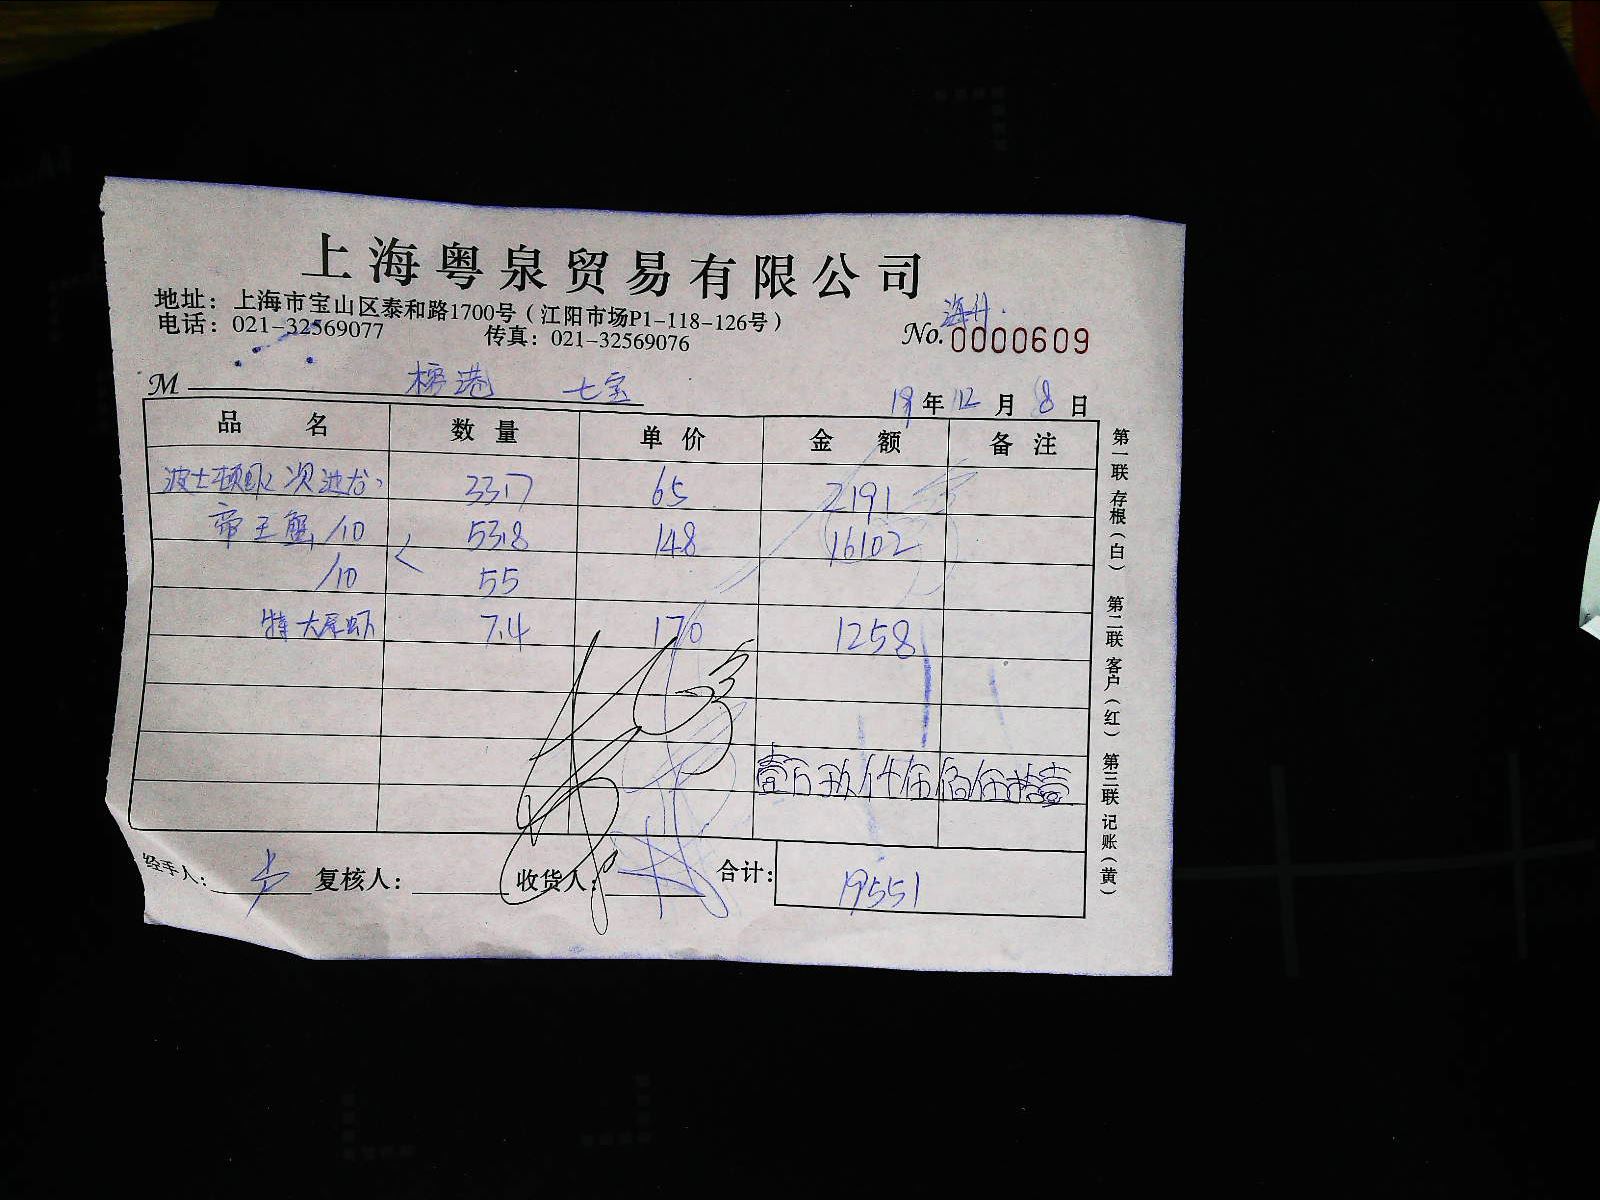 上海粤泉贸易有限公司
地址：上海市宝山区泰和路1700号（江阳市场P1-118-126号）
电话：021-32569077 传真：021-32569076
海鲜
No. 0000609
M 港 七宝
19年12月8日
品 名 数 量 单 价 金 额 备 注
波士顿 次波龙 33.7 65 2191
帝王蟹/10 53.8 148 16102
/10 55
特大 虾 7.4 170 1258
壹万玖仟伍佰伍拾壹
经手人： 复核人： 收货人： 合计： 19551
第一联 存根（白） 第二联 客户（红） 第三联 记账（黄）